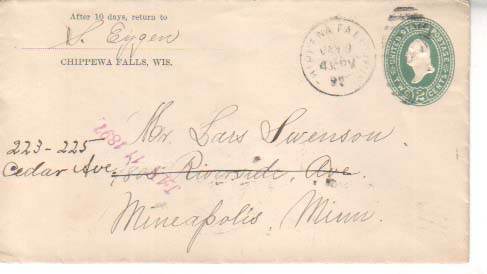 After 10 days, return to
S. Eygen
CHIPPEWA FALLS, WIS.
CHIPPEWA FALLS
UNITED STATES POSTAGE
TWO CENTS
Mr. Lars Swenson.
223-225
Cedar Ave.
Riverside, Ave.
Mineapolis, Minn.
1897